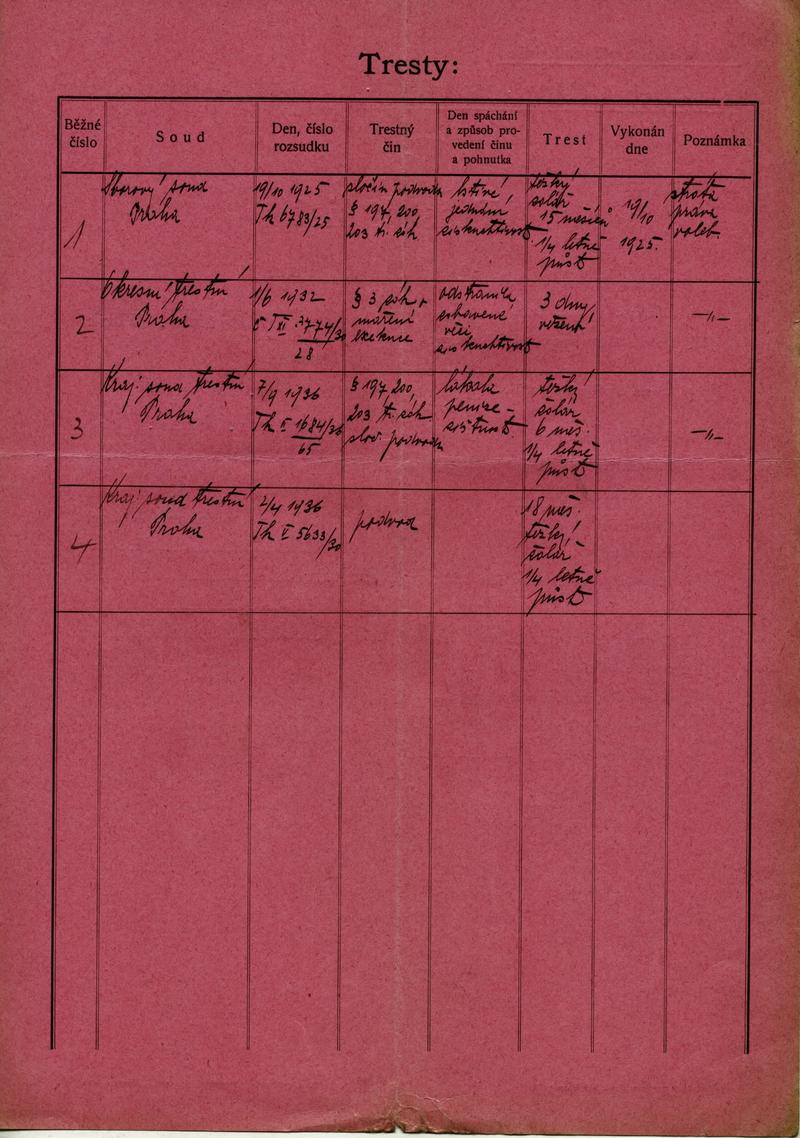 Tresty:
Běžné
číslo
Soud
Den, číslo
rozsudku
Trestný
čin
Den spáchání
a způsob pro-
vedení činu
a pohnutka
Trest
Vykonán
dne
Poznámka
1
Sborový soud
Praha
19/10 1925
Tk 6783/25
zločin podvodu
§ 197, 200,
203 tr. zák
lstivé
jednání,
ziskuchtivost
těžký
žalář
15 měsíců
1/4 letně
půst
19/10
1925.
ztráta
práva
voleb.
2
Okresní trestní
Praha
1/6 1932
28
§ 3 zák.
maření
exekuce
odstranila
zabavené
věci
ziskuchtivost
3 dny
vězení
—„—
3
Kraj. soud trestní
Praha
7/9 1936
Tk I 1684/36
65
§ 197, 200,
203 tr. zák
zloč. podvodu
lákala
peníze –
zištnost
těžký
žalář
6 měs.
1/4 letně
půst
—„—
4
Kraj. soud trestní
Praha
2/4 1936
Tk I 5633/30
podvod
18 měs.
těžký
žalář –
1/4 letně
půst